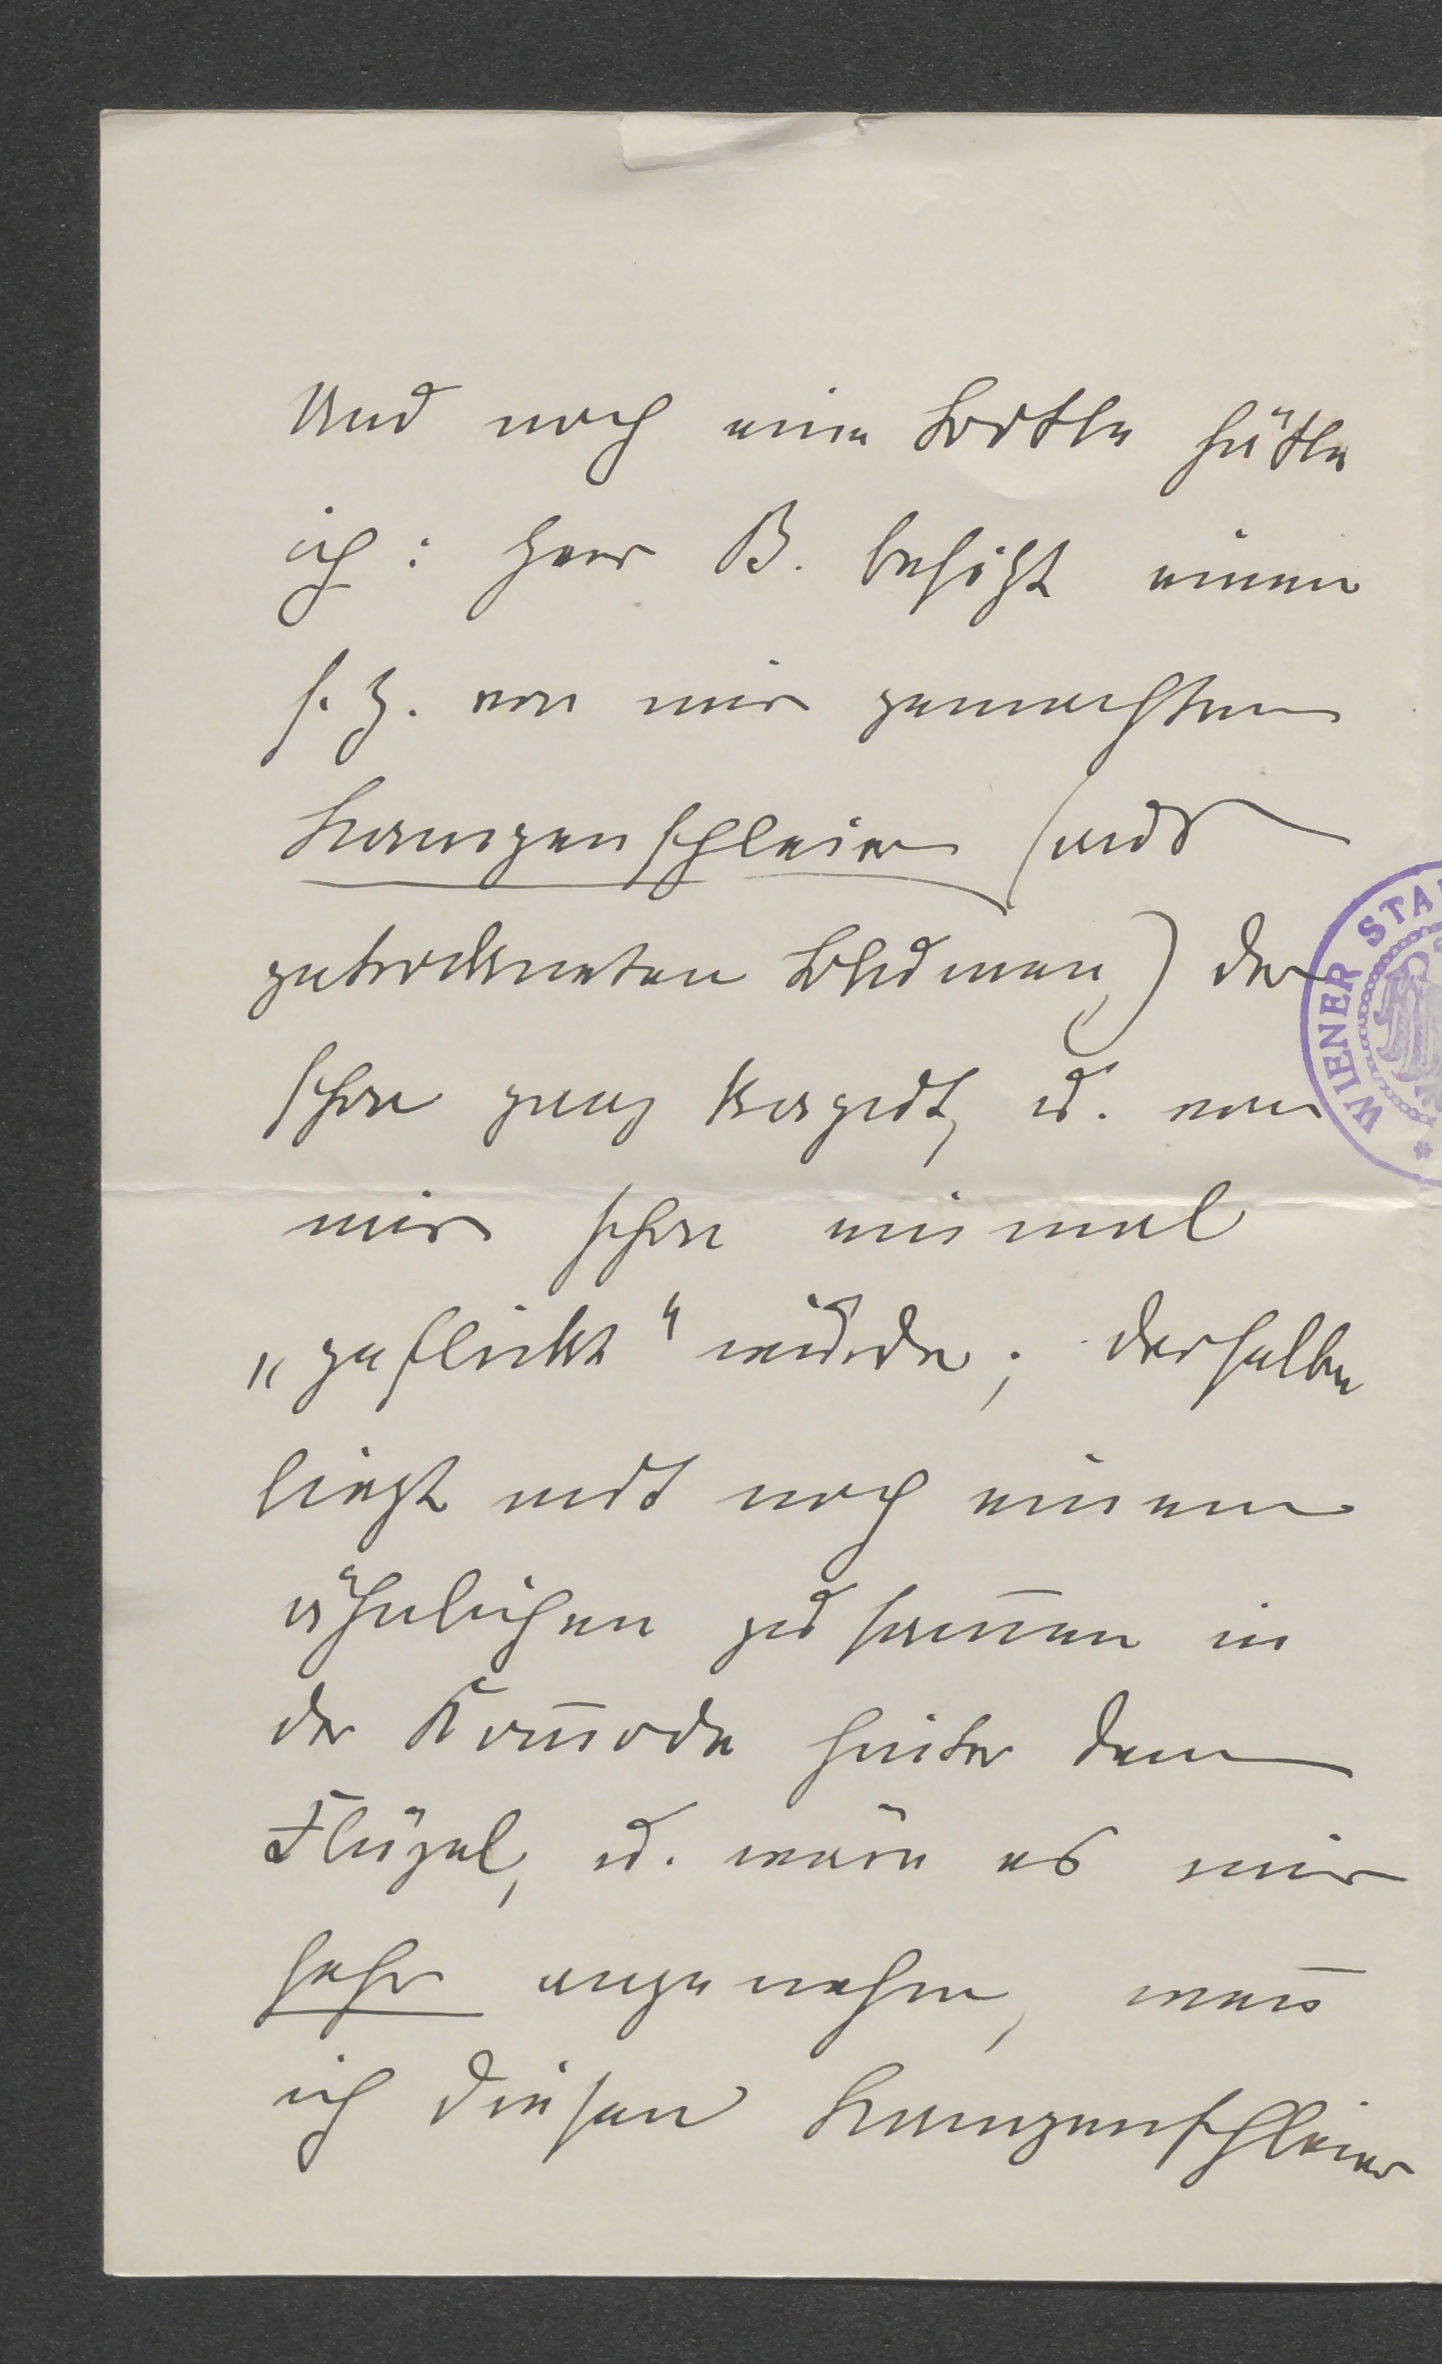 Und noch eine Bitte hätte
ich: Herr B. besitzt einen
s. Z. von mir gemachten
Lampenschleier (aus
getrockneten Blumen,) der
schon ganz kaput, u. von
mir schon einmal
„geflickt“ wurde; derselbe
liegt mit noch einem
ähnlichen zusam̅en in
der Kom̅ode hinter dem
Flügel, u. wäre es mir
sehr angenehm, wen̅
ich diesen Lampenschleier
WIENER STA